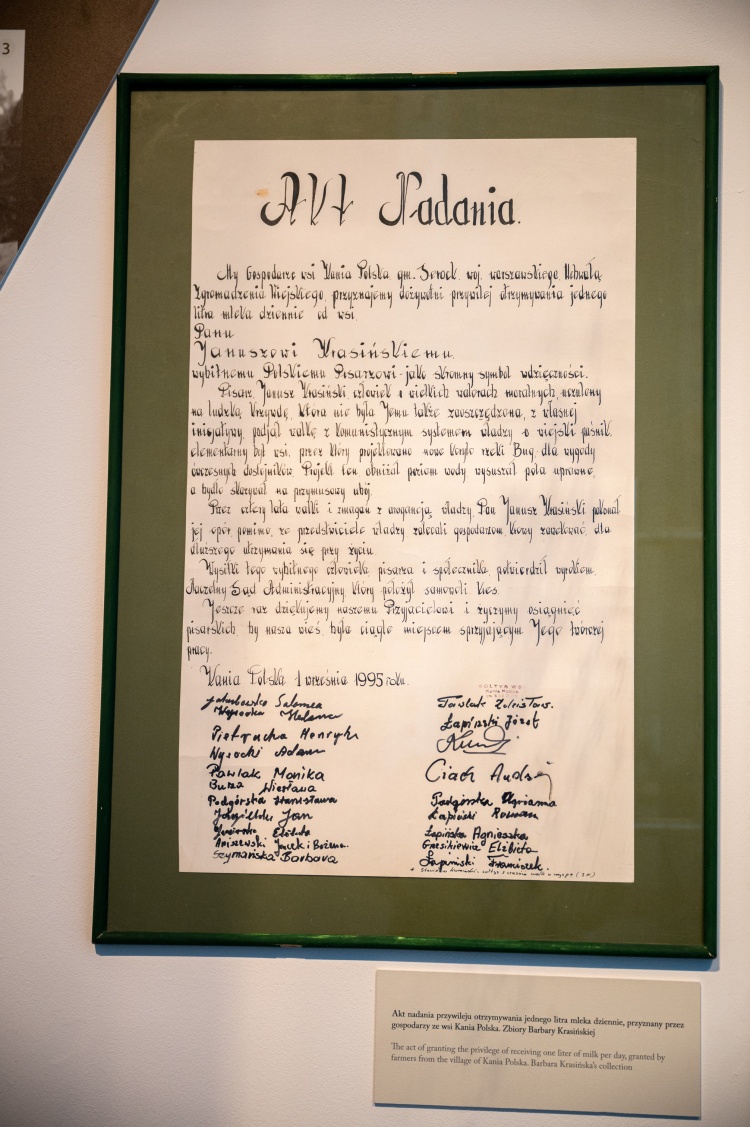 3
Akt Nadania.
My Gospodarze wsi Kania Polska gm. Serock, woj. warszawskiego, Uchwałą
Zgromadzenia Wiejskiego, przyznajemy dożywotni przywilej otrzymywania jednego
litra mleka dziennie od wsi.
Panu
Januszowi Krasińskiemu.
wybitnemu Polskiemu Pisarzowi - jako skromny symbol wdzięczności.
Pisarz, Janusz Krasiński, człowiek o wielkich walorach moralnych, uczulony
na ludzką krzywdę, która nie była Jemu także zaoszczędzona, z własnej
inicjatywy, podjął walkę z komunistycznym systemem władzy o wiejski paśnik,
elementarny byt wsi, przez który projektowano nowe koryto rzeki Bug, dla wygody
ówczesnych dostojników. Projekt ten obniżał poziom wody wysuszał pola uprawne,
a bydło skazywał na przymusowy ubój.
Przez cztery lata walki i zmagań z arogancją władzy, Pan Janusz Krasiński pokonał
jej opór, pomimo, że przedstwiciele władzy zalecali gospodarzom, krowy zawekować, dla
dłuższego utrzymania się przy życiu.
Wysiłki tego wybitnego człowieka, pisarza i społecznika, potwierdził wyrokiem,
Naczelny Sąd Administracyjny, który położył samowoli kres.
Jeszcze raz dziękujemy naszemu Przyjacielowi i życzymy osiągnięć
pisarskich, by nasza wieś, była ciągle miejscem sprzyjającym Jego twórczej
pracy.
Kania Polska 1 września 1995 roku.
SOŁTYS WSI
Kania Polska
Jakubowska Salomea
Wysocka Helena
Pietrucha Henryk
Wysocki Adam
Pawlak Monika
Buza Wiesława
Podgórska Stanisława
Jan
Elżbieta
Aniszewski Jacek i Bożena
Szymańska Barbara
Pawlak Zdzisław.
Łapiński Józef
Ciach Andrzej
Podgórska Marianna
Łapiński Roman
Łapińska Agnieszka
Elżbieta
Łapiński Franciszek.
Akt nadania przywileju otrzymywania jednego litra mleka dziennie, przyznany przez
gospodarzy ze wsi Kania Polska. Zbiory Barbary Krasińskiej
The act of granting the privilege of receiving one liter of milk per day, granted by
farmers from the village of Kania Polska. Barbara Krasińska's collection